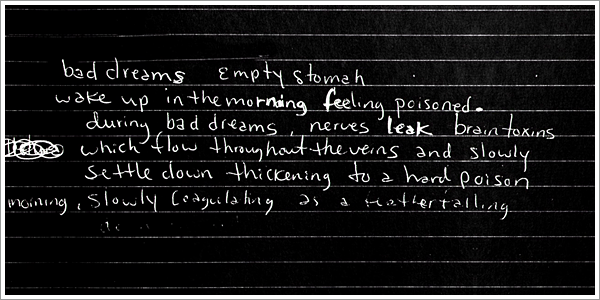 bad dreams empty stomah
wake up in the morning feeling poisoned.
during bad dreams, nerves leak brain toxins
which flow throughout the veins and slowly
settle down thickening to a hard poison
morning, slowly coagulating as a